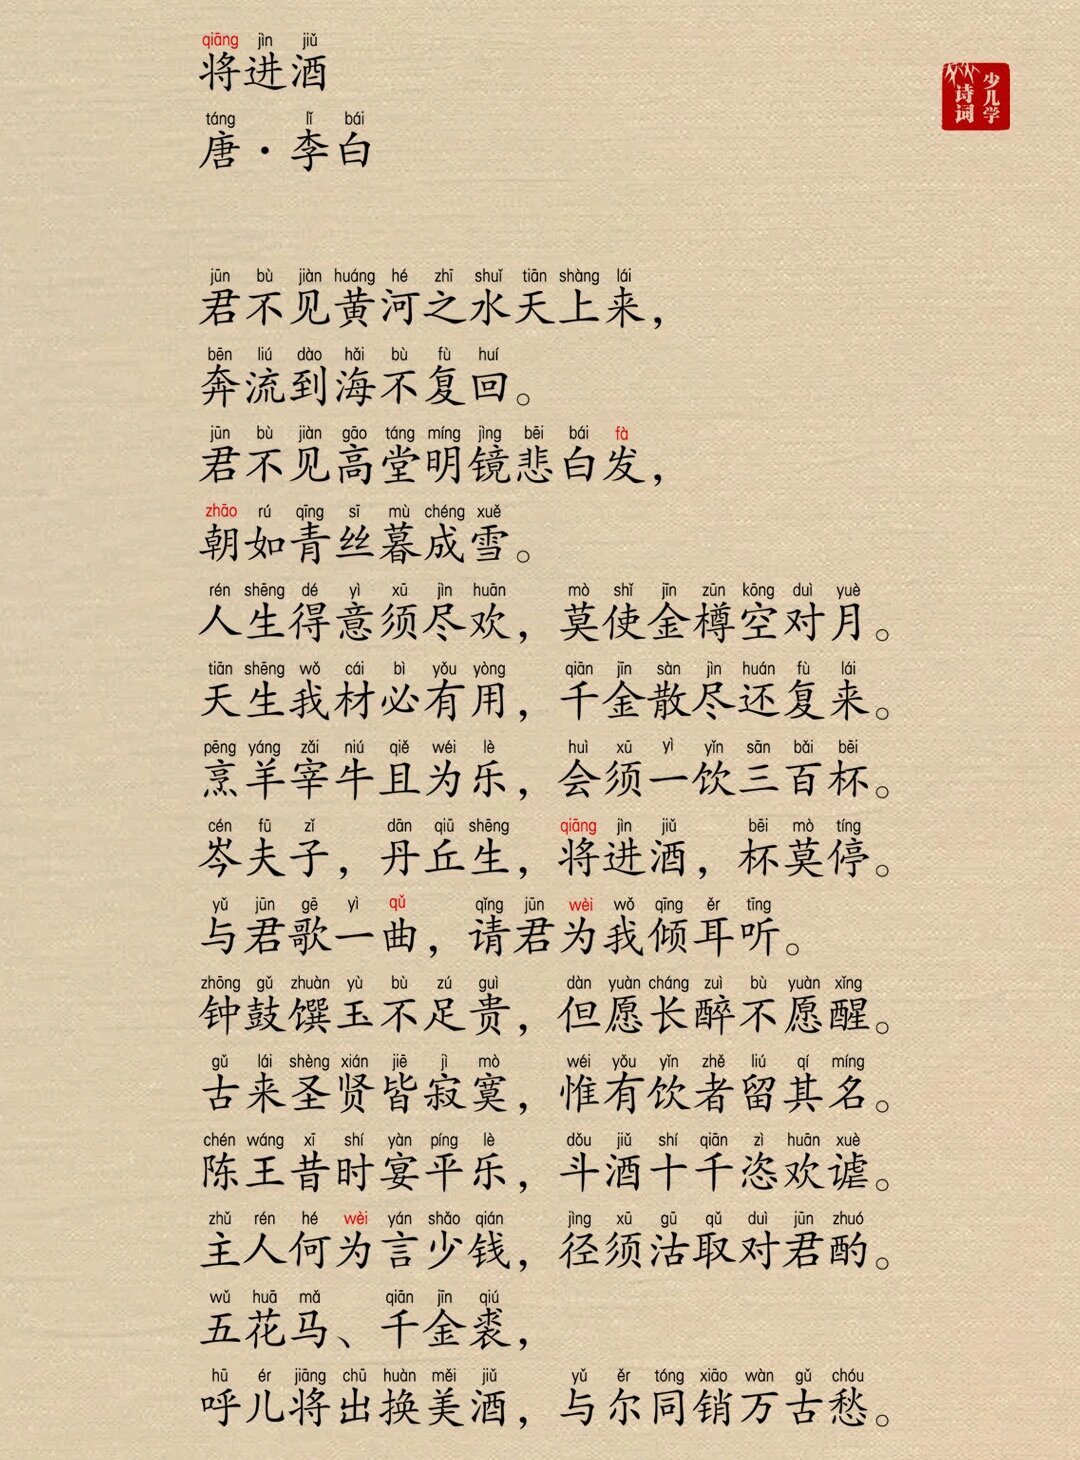 qiāng jìn jiǔ
将进酒
táng lǐ bái
唐·李白
少儿学
诗词
jūn bù jiàn huáng hé zhī shuǐ tiān shàng lái
君不见黄河之水天上来，
bēn liú dào hǎi bù fù huí
奔流到海不复回。
jūn bù jiàn gāo táng míng jìng bēi bái fà
君不见高堂明镜悲白发，
zhāo rú qīng sī mù chéng xuě
朝如青丝暮成雪。
rén shēng dé yì xū jìn huān mò shǐ jīn zūn kōng duì yuè
人生得意须尽欢，莫使金樽空对月。
tiān shēng wǒ cái bì yǒu yòng qiān jīn sàn jìn huán fù lái
天生我材必有用，千金散尽还复来。
pēng yáng zǎi niú qiě wéi lè huì xū yì yǐn sān bǎi bēi
烹羊宰牛且为乐，会须一饮三百杯。
cén fū zǐ dān qiū shēng qiāng jìn jiǔ bēi mò tíng
岑夫子，丹丘生，将进酒，杯莫停。
yǔ jūn gē yì qǔ qǐng jūn wèi wǒ qīng ěr tīng
与君歌一曲，请君为我倾耳听。
zhōng gǔ zhuàn yù bù zú guì dàn yuàn cháng zuì bù yuàn xǐng
钟鼓馔玉不足贵，但愿长醉不愿醒。
gǔ lái shèng xián jiē jì mò wéi yǒu yǐn zhě liú qí míng
古来圣贤皆寂寞，惟有饮者留其名。
chén wáng xī shí yàn píng lè dǒu jiǔ shí qiān zì huān xuè
陈王昔时宴平乐，斗酒十千恣欢谑。
zhǔ rén hé wèi yán shǎo qián jìng xū gū qǔ duì jūn zhuó
主人何为言少钱，径须沽取对君酌。
wǔ huā mǎ qiān jīn qiú
五花马、千金裘，
hū ér jiāng chū huàn měi jiǔ yǔ ěr tóng xiāo wàn gǔ chóu
呼儿将出换美酒，与尔同销万古愁。